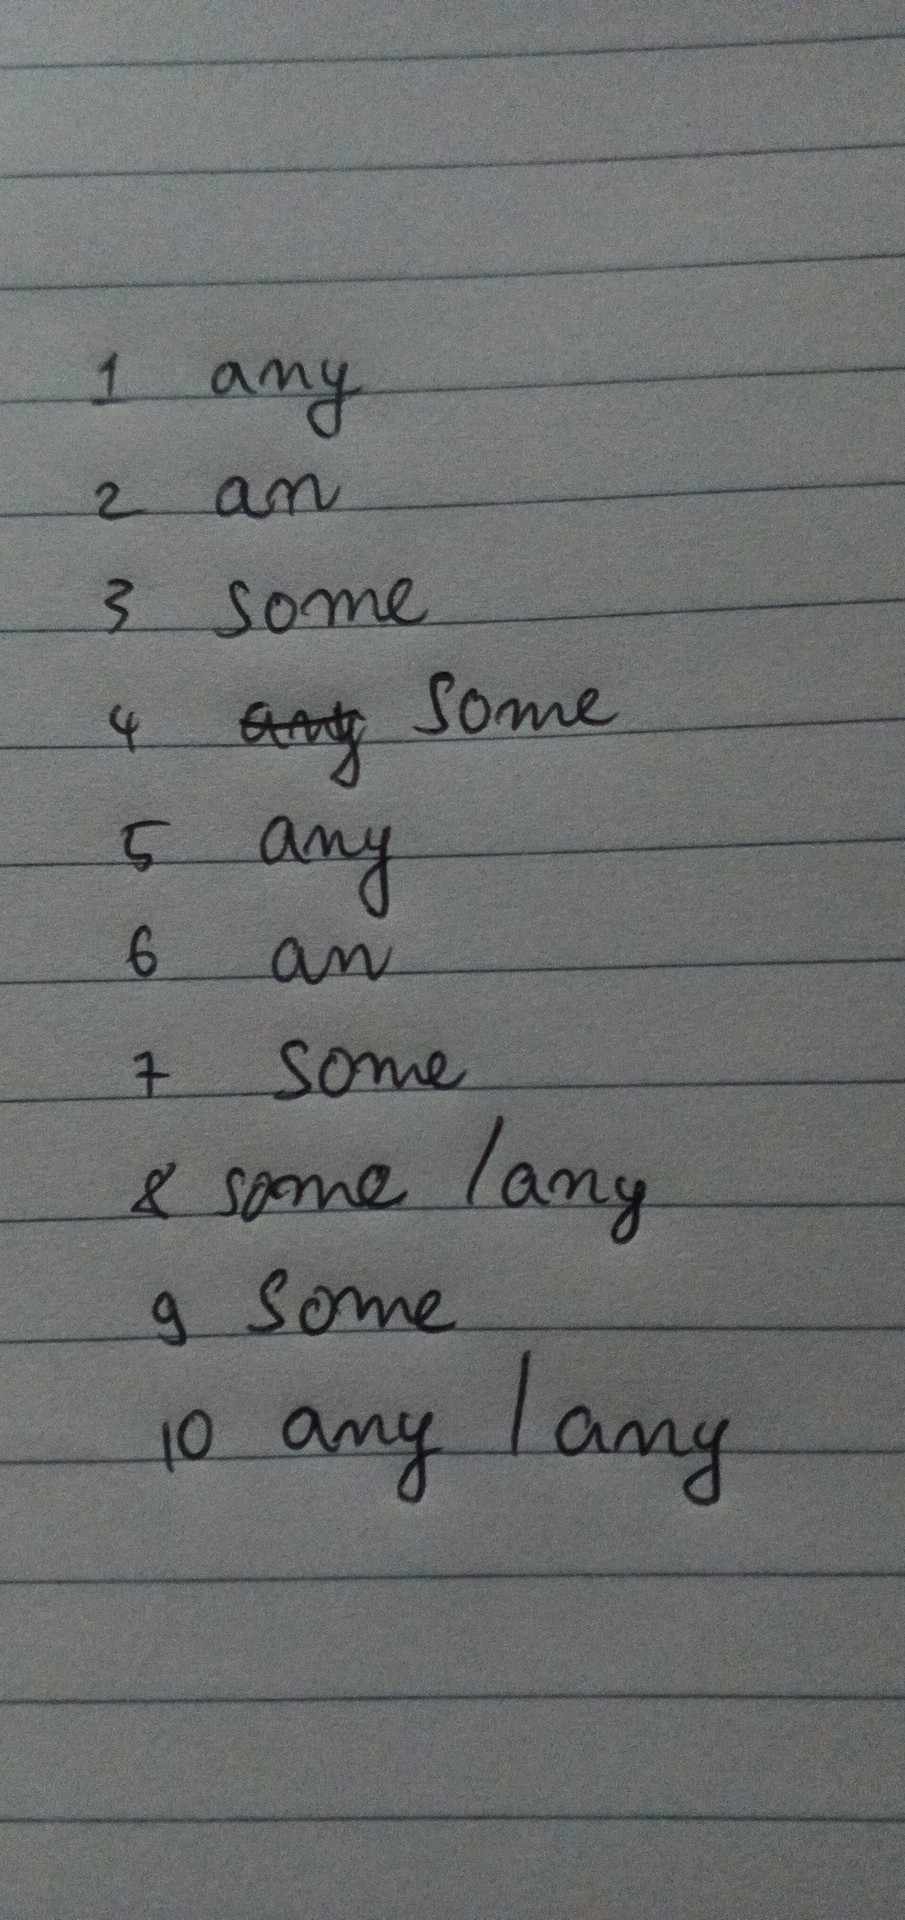 1 any
2 an
3 some
4 any some
5 any
6 an
7 some
8 some / any
9 some
10 any / any